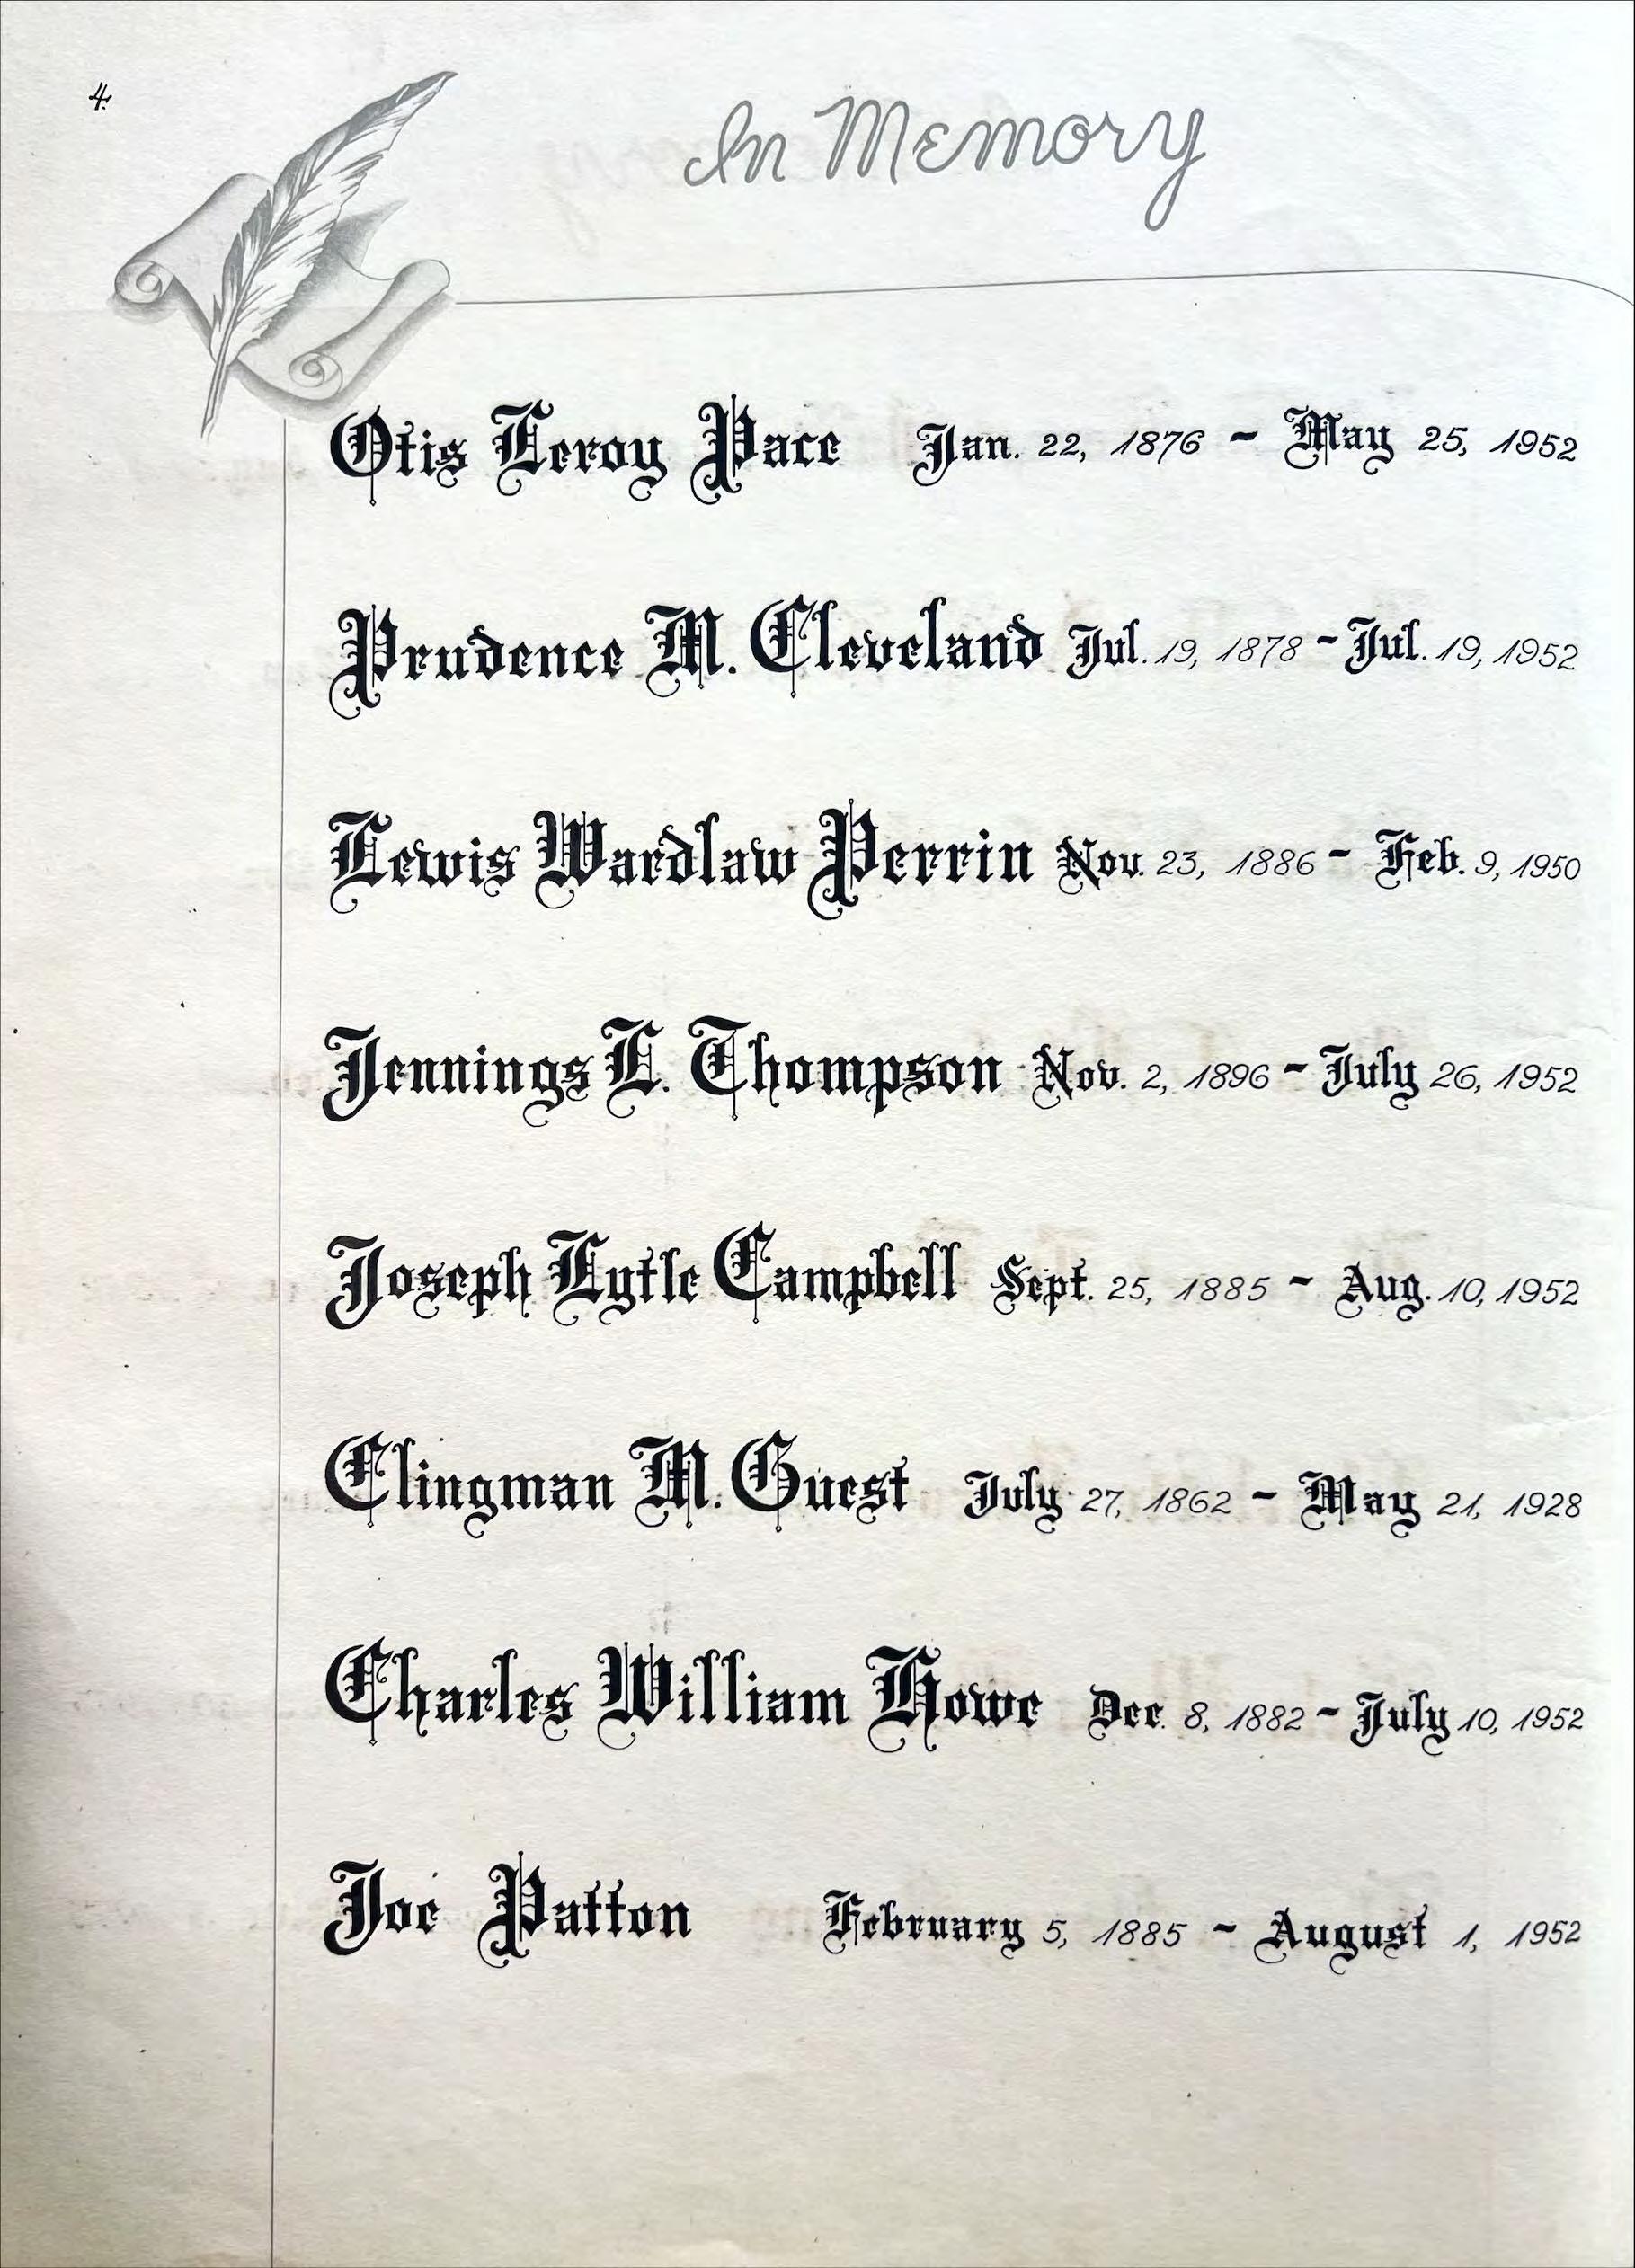 4.
In Memory
Otis Leroy Pace Jan. 22, 1876 - May 25, 1952
Prudence M. Cleveland Jul. 19, 1878 - Jul. 19, 1952
Lewis Wardlaw Perrin Nov. 23, 1886 - Feb. 9, 1950
Jennings L. Thompson Nov. 2, 1896 - July 26, 1952
Joseph Lytle Campbell Sept. 25, 1885 - Aug. 10, 1952
Clingman M. Guest July 27, 1862 - May 21, 1928
Charles William Howe Dec. 8, 1882 - July 10, 1952
Joe Patton February 5, 1885 - August 1, 1952